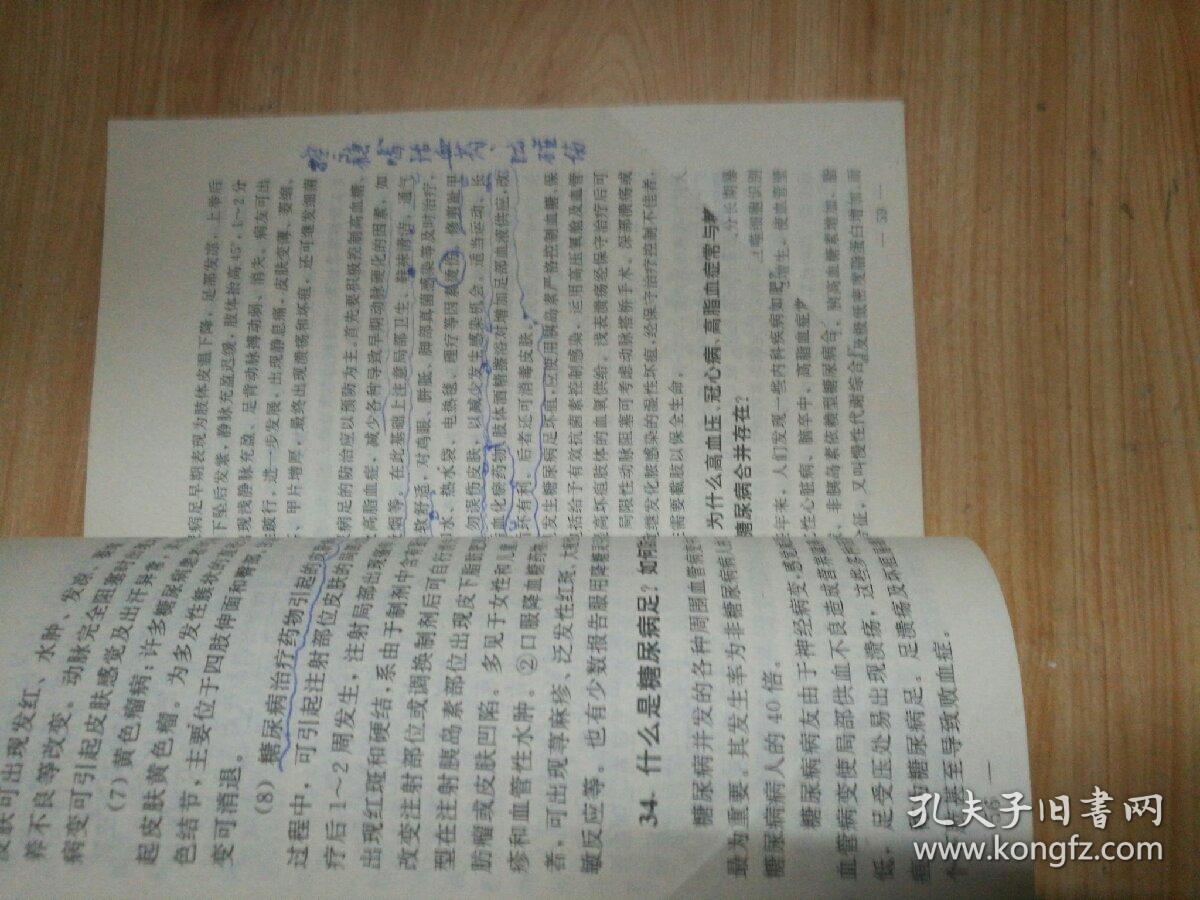 皮肤可出现发红、水肿、发凉、
养不良等改变。动脉完全阻塞时
病变可引起皮肤感觉及出汗异常,
(7)黄色瘤病:许多糖尿病患者
起皮肤黄色瘤。为多发性簇状的
色结节,主要位于四肢伸面和臀部,
变可消退。
(8)糖尿病治疗药物引起的皮肤
过程中,可引起注射部位皮肤的
疗后1~2周发生,注射局部出现
出现红斑和硬结,系由于制剂中含有
改变注射部位或调换制剂后可自行
型在注射胰岛素部位出现皮下脂肪
肪瘤或皮肤凹陷。多见于女性和儿童
疹和血管性水肿。②口服降血糖药物
者,可出现荨麻疹、泛发性红斑、大疱
敏反应等。也有少数报告服用降糖灵
34. 什么是糖尿病足?如何
糖尿病并发的各种周围血管病变中
最为重要。其发生率为非糖尿病病人
糖尿病病人的40倍。
糖尿病病友由于神经病变,感觉
血管病变使局部供血不良造成营养
低,足受压处易出现溃疡,这些多种
称为糖尿病足。足溃疡及坏疽
甚至导致败血症。
病足早期表现为肢体皮温下降,足部发凉、上举后
下坠后发紫,静脉充盈迟缓,肢体抬高45°1~2分
现浅静脉充盈、足背动脉搏动弱、消失。病友可出
跛行,进一步发展,出现静息痛,皮肤变薄、萎缩,
、甲片增厚,最终出现溃疡和坏疽,还可继发细菌
病足的防治应以预防为主。首先要积极控制高血糖、
高脂血症,减少各种导致早期动脉硬化的因素,如
烟等。在此基础上注意局部卫生、鞋袜清洁、通气
致舒适,对鸡眼、胼胝、脚部真菌感染等及时治疗,
水、热水袋、电热毯、理疗等因素烫伤、修剪趾甲
勿误伤皮肤,以减少发生感染机会。适当运动、长
血化瘀药物、肢体酒精擦浴对增加足部血液供应,改
环有利。后者还可消毒皮肤。
发生糖尿病足坏疽,应使用胰岛素严格控制血糖,保
括给予有效抗菌素控制感染,运用高压氧舱及血管
高坏疽肢体的血氧供给。浅表溃疡经保守治疗后可
局限性动脉阻塞可考虑动脉搭桥手术。深部溃疡或
继发化脓感染的湿性坏疽,经保守治疗控制不佳者,
需要截肢以保全生命。
为什么高血压、冠心病、高脂血症常与
糖尿病合并存在?
年来,人们发现一些内科疾病如肥
性心脏病、脑卒中、高脂血症
、非胰岛素依赖型糖尿病合
征,又叫慢性代谢综合
分长期暴
唯细胞识别
增生。使血管壁
到高血糖素增加、脂
及极低密度脂蛋白增加,而
— 53 —
孔夫子旧书网
www.kongfz.com